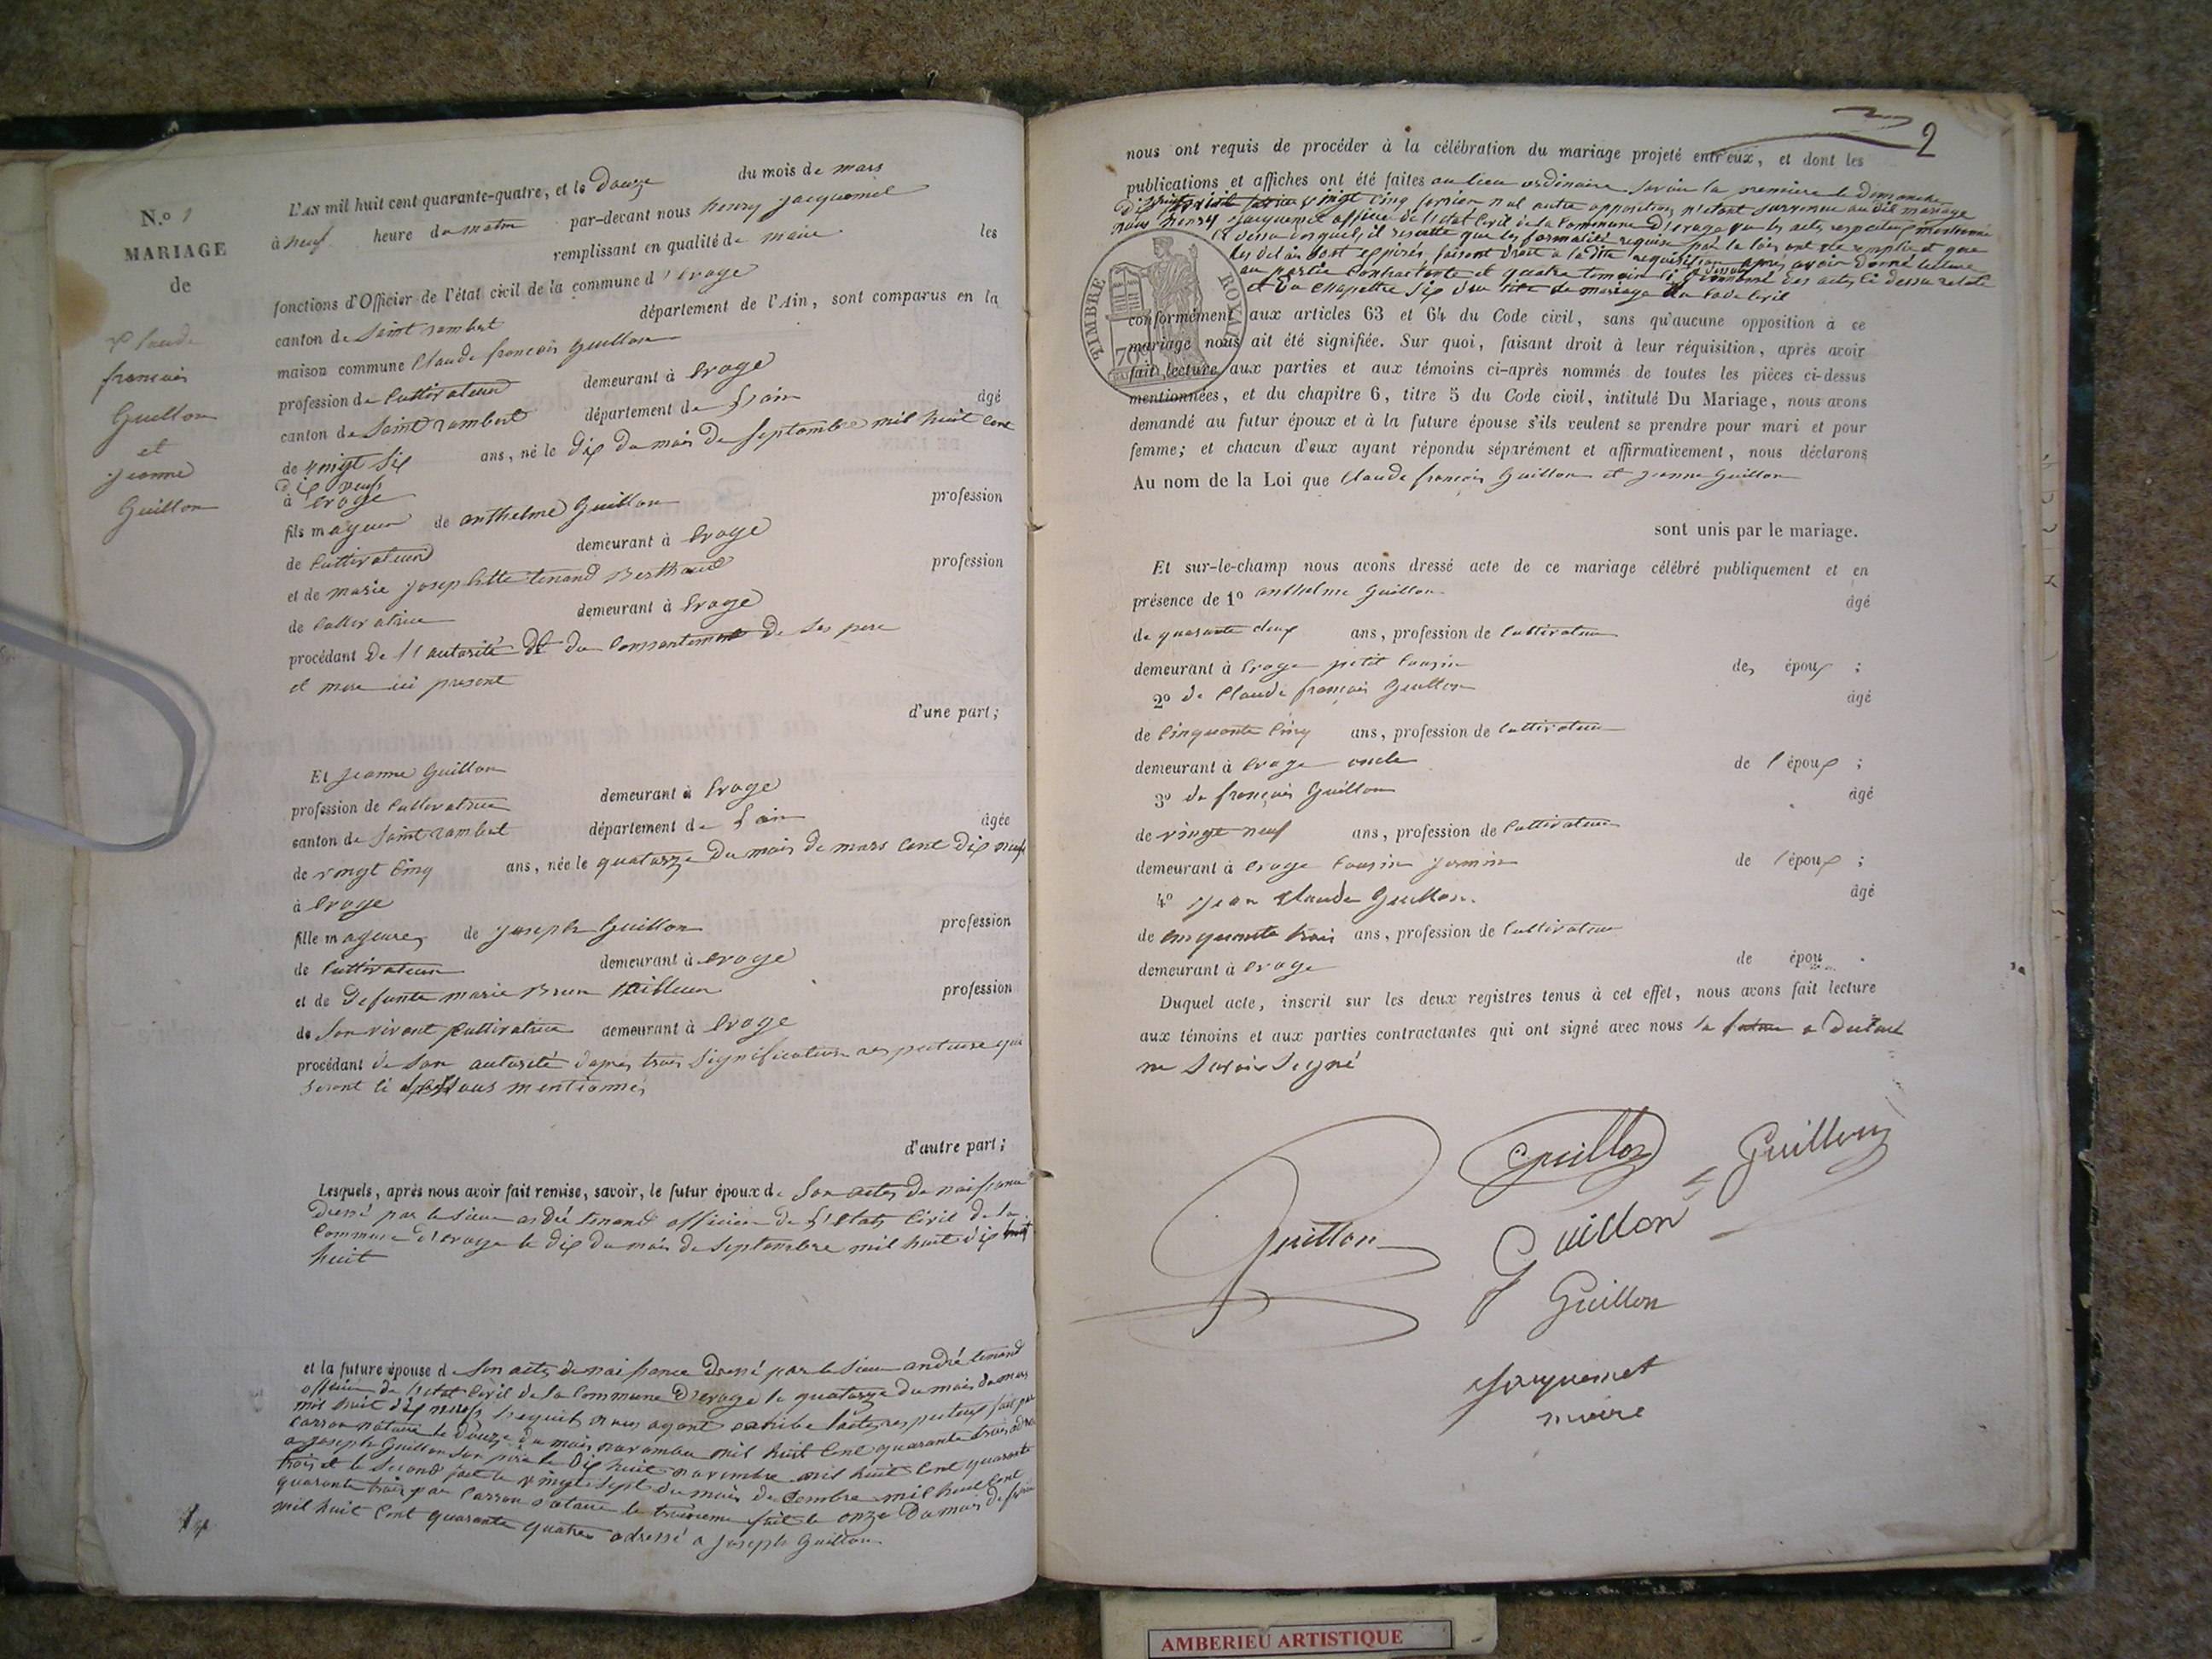 N.o 1
MARIAGE
de
Claude
françois
Guillon
et
jeanne
Guillon
L'AN mil huit cent quarante-quatre, et le Douze du mois de mars
à neuf heure du matin par-devant nous henry jacquemet
remplissant en qualité de maire les
fonctions d'Officier de l'état civil de la commune d'Evoge
canton de Saint rambert département de l'Ain, sont comparus en la
maison commune Claude françois Guillon
profession de Cultivateur demeurant à Evoge
canton de Saint rambert département de l'ain âgé
de vingt six ans, né le dix du mois de septembre mil huit cent
dix neuf
à Evoge
fils mageur de anthelme Guillon profession
de Cultivateur demeurant à Evoge
et de marie josephette tenand Berthaud profession
de Cultivatrice demeurant à Evoge
procédant De l'autorité et du Consentement de ses pere
et mere ici present
d'une part;
Et jeanne Guillon
profession de Cultivatrice demeurant à Evoge
canton de Saint rambert département de l'ain âgée
de vingt cinq ans, née le quatorze Du mois de mars cent dix neuf
à Evoge
fille mageure de joseph Guillon profession
de Cultivateur demeurant à Evoge
et de Defunte marie Brun profession
de Son vivant Cultivatrice demeurant à Evoge
procédant de son autorité dapres trois signification respectueuse qui
seront ci dessous mentionnes
d'autre part;
Lesquels, après nous avoir fait remise, savoir, le futur époux de Son actes de naissance
dressé par le sieur andré tenand officier de l'Etats Civil de la
Commune d'Evoge le dix du mois de septembre mil huit dix huit
huit
et la future épouse de Son acte de naissance dressé par le Sieur andré tenand
officier de l'etat Civil de la Commune D'Evoge le quatorze du mois de mars
mil huit dix neuf lesquels nous ayant lactes respectueux fait par
Carron notaire le douze du mois novembre mil huit Cent quarante trois
a joseph Guillon son père le Dix huit novembre mil huit Cent quarante
trois et le Second fait le vingt sept du mois decembre mil huit Cent
quarante trois par Carron notaire le troisieme fait le onze Du mois de
mil huit Cent quarante quatre adressé a joseph Guillon
2
nous ont requis de procéder à la célébration du mariage projeté entr'eux, et dont les
publications et affiches ont été faites au lieu ordinaire savoir la premiere le Dimanche
vingt cinq fevrier nul autre opposition n'etant survenue au dit mariage
nous henry jacquemet officier de l'etat Civil de la Commune D'evoge vu les actes respectueux mentionné
ci dessu desquels il resulte que les formalité requise par la loi ont ete remplie et que
les delais sont expirés, faisant Droit a la dite requisition apres avoir donné lecture
au partie Contractante et quatre temoin des actes ci dessu relaté
et du chapittre six du titre de mariage du Code Civil
conformément aux articles 63 et 64 du Code civil, sans qu'aucune opposition à ce
mariage nous ait été signifiée. Sur quoi, faisant droit à leur réquisition, après avoir
fait lecture aux parties et aux témoins ci-après nommés de toutes les pièces ci-dessus
mentionnées, et du chapitre 6, titre 5 du Code civil, intitulé Du Mariage, nous avons
demandé au futur époux et à la future épouse s'ils veulent se prendre pour mari et pour
femme; et chacun d'eux ayant répondu séparément et affirmativement, nous déclarons
Au nom de la Loi que Claude françois Guillon et jeanne Guillon
sont unis par le mariage.
Et sur-le-champ nous avons dressé acte de ce mariage célébré publiquement et en
présence de 1o anthelme Guillon âgé
de quarante deux ans, profession de Cultivateur
demeurant à Evoge petit Cousin des époux ;
2o de Claude françois Guillon âgé
de Cinquante Cinq ans, profession de Cultivateur
demeurant à Evoge oncle de l'époux ;
3o de françois Guillon âgé
de vingt neuf ans, profession de Cultivateur
demeurant à Evoge Cousin jermin de l'époux ;
4o jean Claude Guillon. âgé
de Cinquante trois ans, profession de Cultivateur
demeurant à Evoge de épou .
Duquel acte, inscrit sur les deux registres tenus à cet effet, nous avons fait lecture
aux témoins et aux parties contractantes qui ont signé avec nous la future a
ne Savoir Signé
TIMBRE ROYAL
70c
Guillon
Guillon
Guillon
Guillon
Guillon
Jacquemet
maire
AMBERIEU ARTISTIQUE